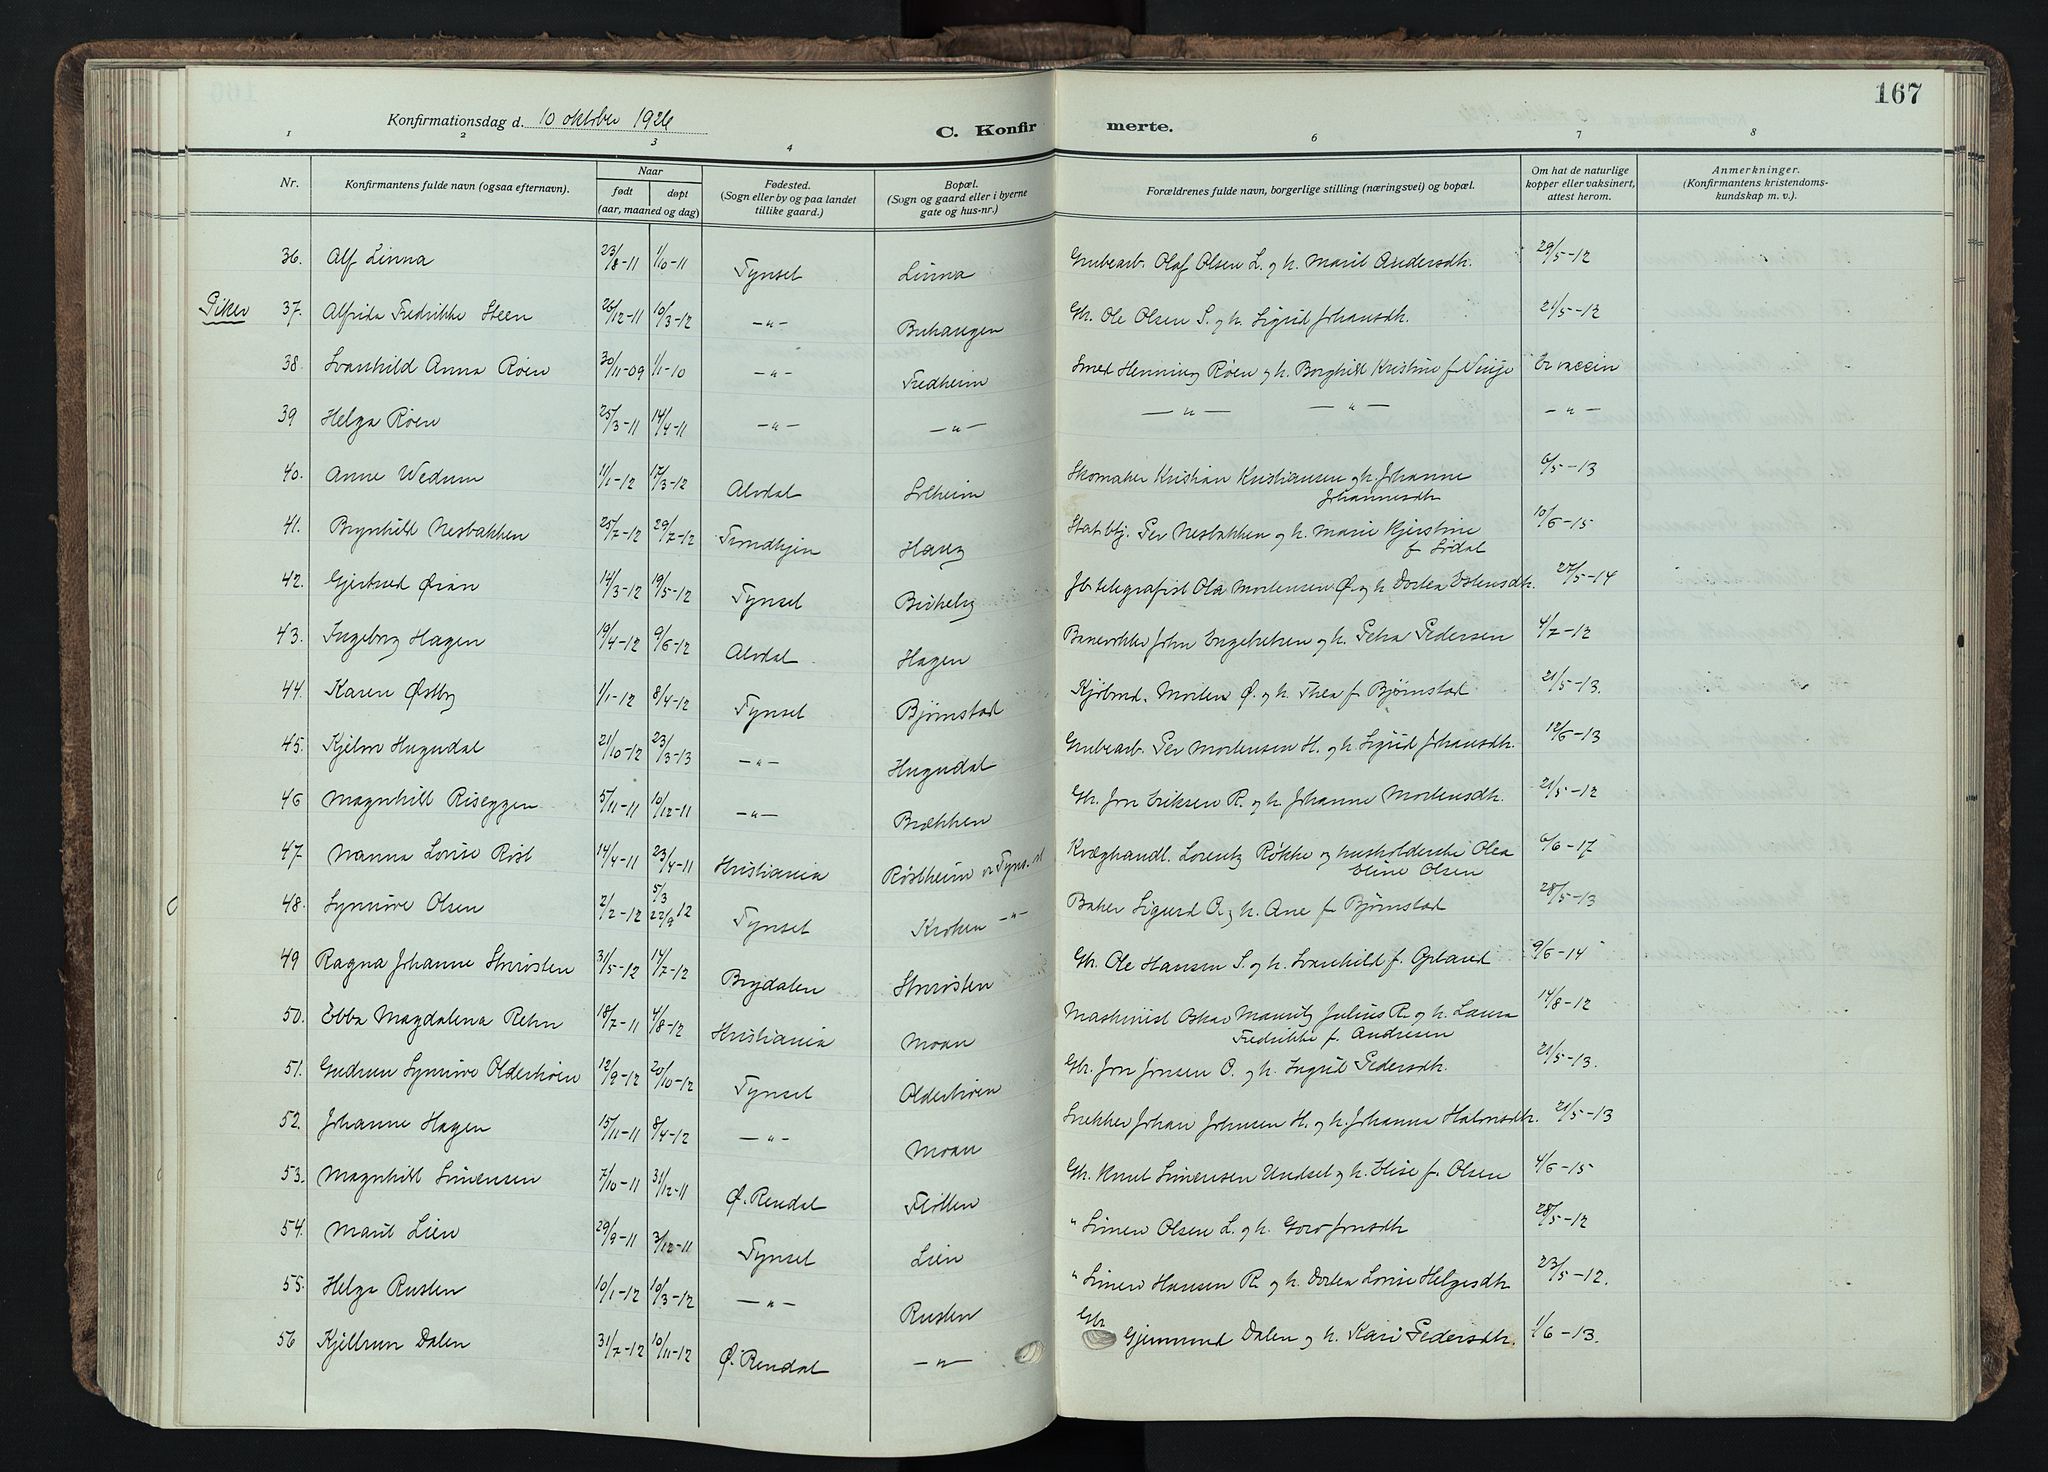 167
Konfirmationsdag d. 10 oktober 1926
C. Konfirmerte.
1 2 3 4 6 7 8
Nr. Konfirmantens fulde navn (ogsaa efternavn). Naar født døpt (aar, maaned og dag) Fødested. (Sogn eller by og paa landet tillike gaard.) Bopæl. (Sogn og gaard eller i byerne gate og hus-nr.) Forældrenes fulde navn, borgerlige stilling (næringsvei) og bopæl. Om hat de naturlige kopper eller vaksinert, attest herom. Anmerkninger. (Konfirmantens kristendomskundskap m. v.).
36. Alf Linna 23/8-11 1/10-11 Tynset Linna Grubearb. Olaf Olsen L. og h. Marit Andersdh. 29/5-12
Piker 37. Alfrida Fredrikke Steen 26/12-11 10/3-12 -"- Buhaugen Gbr. Ole Olsen S. og h. Sigrid Johansdh. 21/5-12
38. Svanhild Anna Røen 30/11-09 1/1-10 -"- Fredheim Smed Henning Røen og h. Borghild Kristine f. Vinje Er vaccin
39 Helga Røen 25/3-11 14/4-11 -"- -"- -"- -"- -"-
40. Anne Wedum 11/1-12 17/3-12 Alvdal Solheim Skomaker Kristian Kristiansen og h. Johanne Johannesdh 6/5-13
41. Brynhild Nesbakken 25/7-12 29/7-12 Trondhjem Haug Statsbtj. Per Nesbakken og h. Marie Kjerstine f. Lødal 10/6-15
42. Gjertrud Øian 14/3-12 19/5-12 Tynset Birkeby Jb.telegrafist Ola Mortensen Ø. og h. Dortea Estensdh. 27/5-14
43. Ingeborg Hagen 19/4-12 9/6-12 Alvdal Hagen Banevokter John Engebretsen og h. Petra Pedersen 4/7-12
44. Karen Østby 1/1-12 8/4-12 Tynset Bjørnstad Kjøbmd. Morten Ø. og h. Thea f. Bjørnstad 21/5-13.
45. Kjellor Hugudal 21/10-12 23/3-13 -"- Hugudal Grubearb. Per Mortensen H. og h. Sigrid Johansdh. 12/6-13
46 Magnhild Riseggen 5/11-11 10/12-11 -"- Brækken Gbr. Jon Eriksen R. og h. Johanne Mortensdh. 21/5-12
47. Nanna Lovise Røst 14/4-11 23/4-11 Kristiania Røstheim v. Tynset Kvæghandl. Lorentz Røkke og husholderske Olea Eline Olsen 6/6-17
48. Synnøve Olsen 2/2-12 5/3 22/9 12 Tynset Kroken -"- Baker Sigurd O. og h. Ane f. Bjørnstad 28/5-13
49 Ragna Johanne Storøsten 31/5-12 14/7-12 Brydalen Storøsten Gbr. Ole Hansen S. og h. Svanhild f. Opland 9/6-14
50. Ebba Magdalena Rehn 18/7-11 4/8-12 Kristiania Moan Maskinist Oskar Mauritz Julius R. og h. Laura Fredrikke f. Andresen 14/8-12
51. Gudrun Synnøve Olderkøien 12/9-12 20/10-12 Tynset Olderkøien Gbr. Jon Jonsen O. og h. Ingrid Pedersdh. 21/5-13.
52. Johanne Hagen 15/11-11 8/4-12 -"- Moan Snekker Johan Johnsen H. og h. Johanna Halvorsdh. 21/5-13
53. Magnhild Simensen 7/10-11 31/12-11 Ø. Rendal Fløtten Gbr. Knut Simensen Undset og h. Elise f. Olsen 4/6-15
54. Marit Lien 29/9-11 3/12-11 Tynset Lien " Simen Olsen L. og h. Goro Jonsdh 28/5-12
55. Helga Rusten 10/1-12 10/3-12 -"- Rusten " Simen Hansen R. og h. Dortea Lovise Helgesdh 23/5-12.
56 Kjellrun Dalen 31/7-12 10/11-12 Ø. Rendal -"- Gbr Gjermund Dalen og h. Kari Pedersdh. 1/6-13.